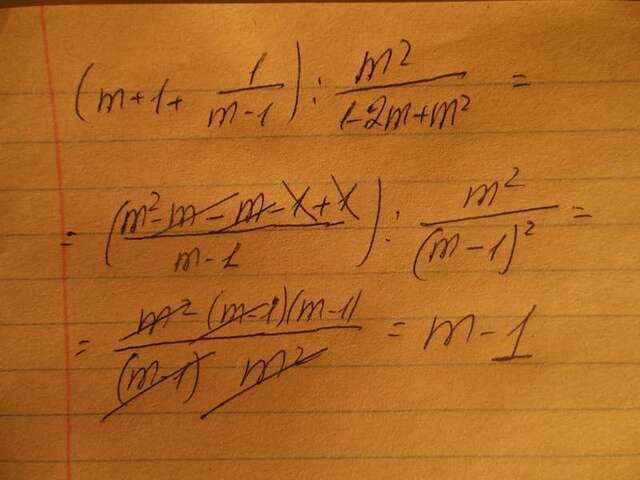 (m+1+ 1/(m-1)) : m²/(1-2m+m²) =
= ((m²-m-m-1+1)/(m-1)) : m²/(m-1)² =
= (m² (m-1)(m-1))/((m-1) m²) = m-1